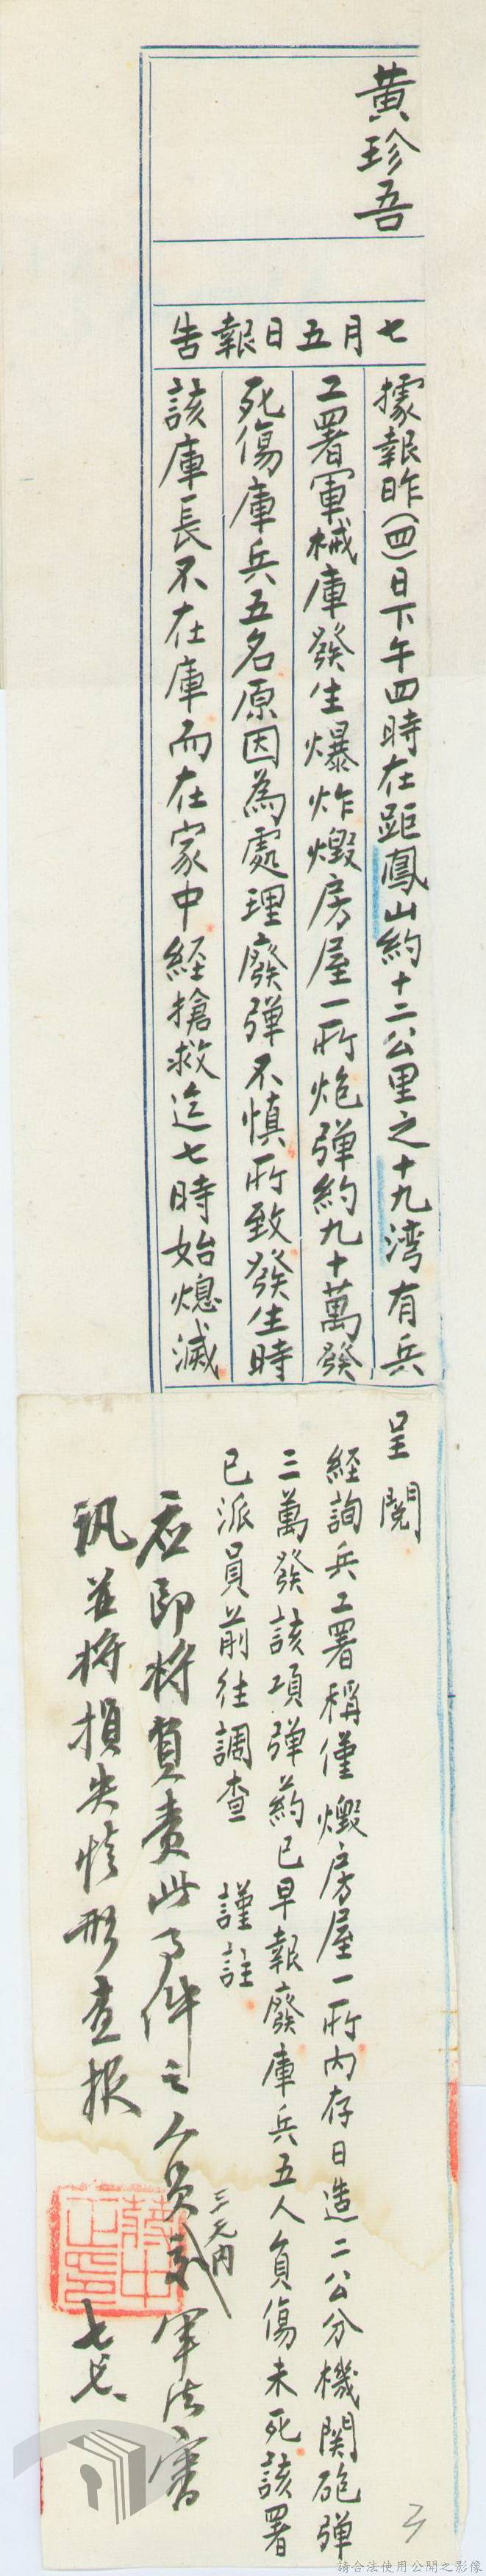 黄珍吾
七月五日報告
據報昨(四)日下午四時在距鳳山約十二公里之十九湾有兵
工署軍械庫發生爆炸燬房屋一所炮彈約九十萬發
死傷庫兵五名原因為處理廢彈不慎所致發生時
該庫長不在庫而在家中經搶救迄七時始熄滅
呈閱
經詢兵工署稱僅燬房屋一所內存日造二公分機関砲彈
三萬發該項彈葯已早報廢庫兵五人負傷未死該署
已派員前往調查 謹註
應即將負責此事件之人員交軍法審
三天內
訊並將損失情形查報
七七
蔣中正印
請合法使用公開之影像